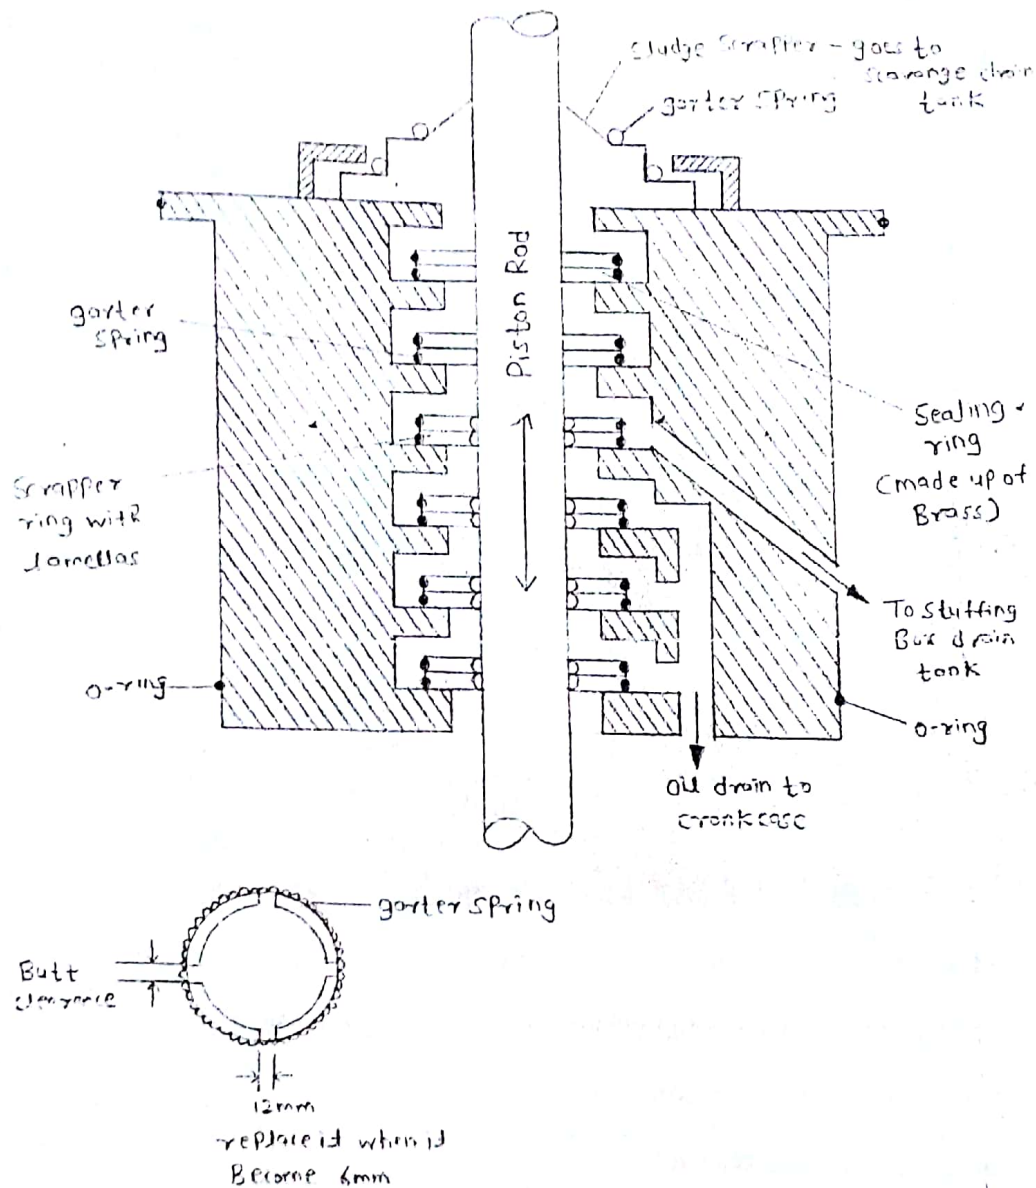 Sludge Scrapper - goes to
scavange drain
tank
garter spring
Piston Rod
garter
spring
Sealing
ring
(made up of
Brass)
Scrapper
ring with
lamellas
To stuffing
Box drain
tank
o-ring
o-ring
Oil drain to
crankcase
garter spring
Butt
clearance
12mm
replace it when it
Become 6mm